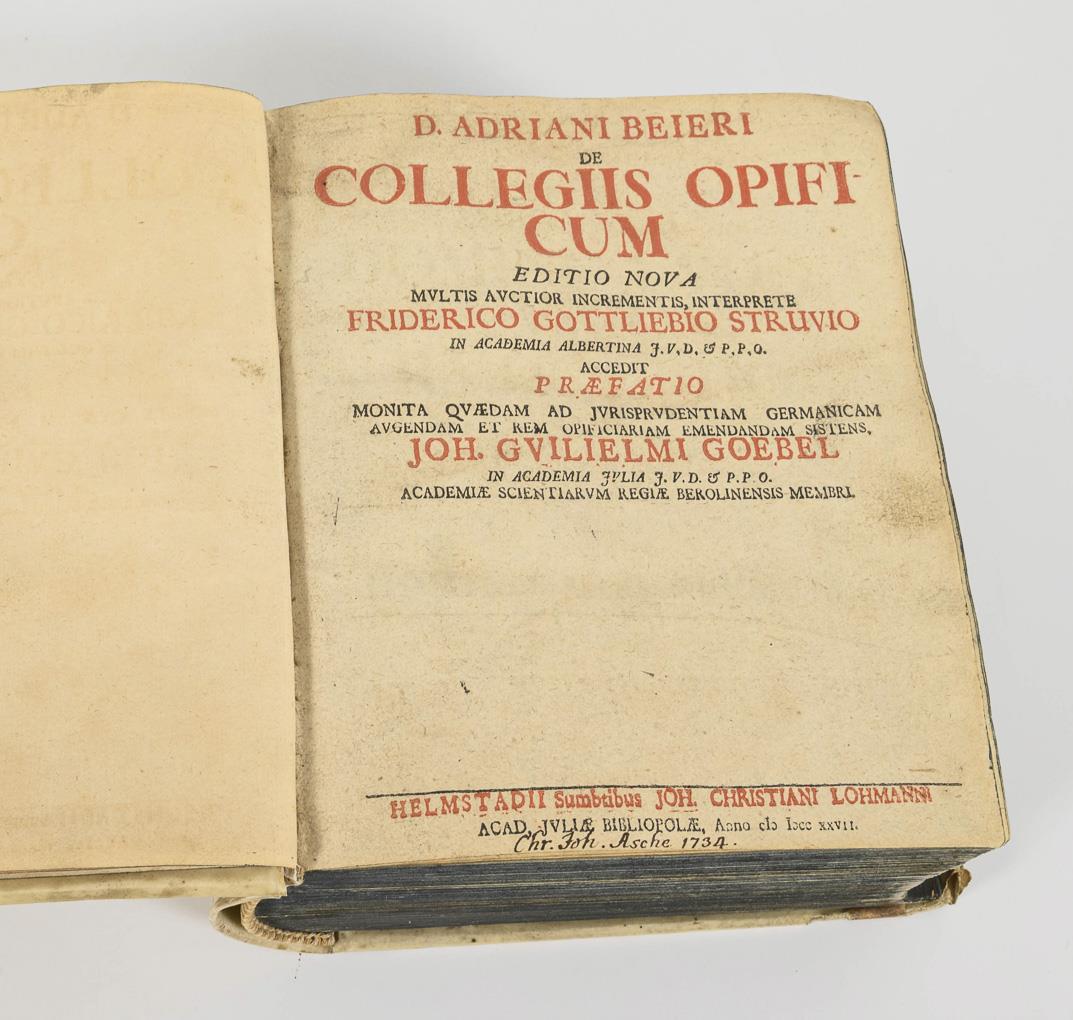 D. ADRIANI BEIERI
DE
COLLEGIIS OPIFI-
CUM
EDITIO NOVA
MVLTIS AVCTIOR INCREMENTIS, INTERPRETE
FRIDERICO GOTTLIEBIO STRUVIO
IN ACADEMIA ALBERTINA J. V. D. & P. P. O.
ACCEDIT
PRÆFATIO
MONITA QVÆDAM AD JVRISPRVDENTIAM GERMANICAM
AVGENDAM ET REM OPIFICIARIAM EMENDANDAM SISTENS,
JOH. GVILIELMI GOEBEL
IN ACADEMIA JVLIA J. V. D. & P. P. O.
ACADEMIÆ SCIENTIARVM REGIÆ BEROLINENSIS MEMBRI.
HELMSTADII Sumbtibus JOH. CHRISTIANI LOHMANNI
ACAD. JVLIÆ BIBLIOPOLÆ, Anno cIɔ Iɔcc xxvii.
Chr. Joh. Asche 1734.